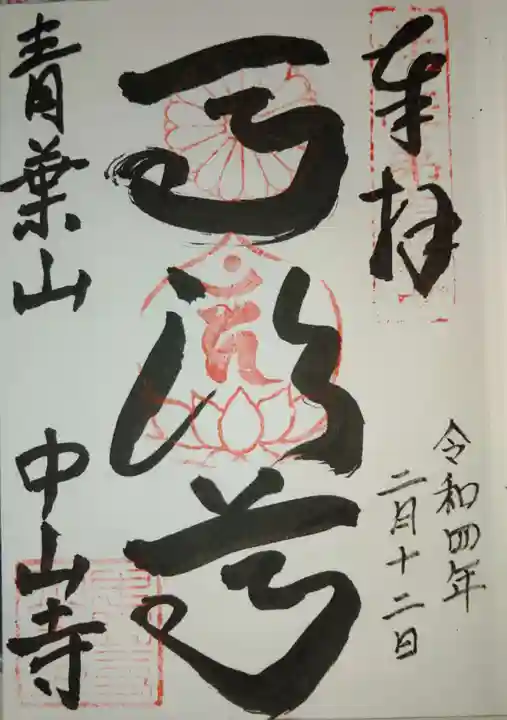 奉拝
令和四年
二月十二日
馬頭尊
青葉山
中山寺